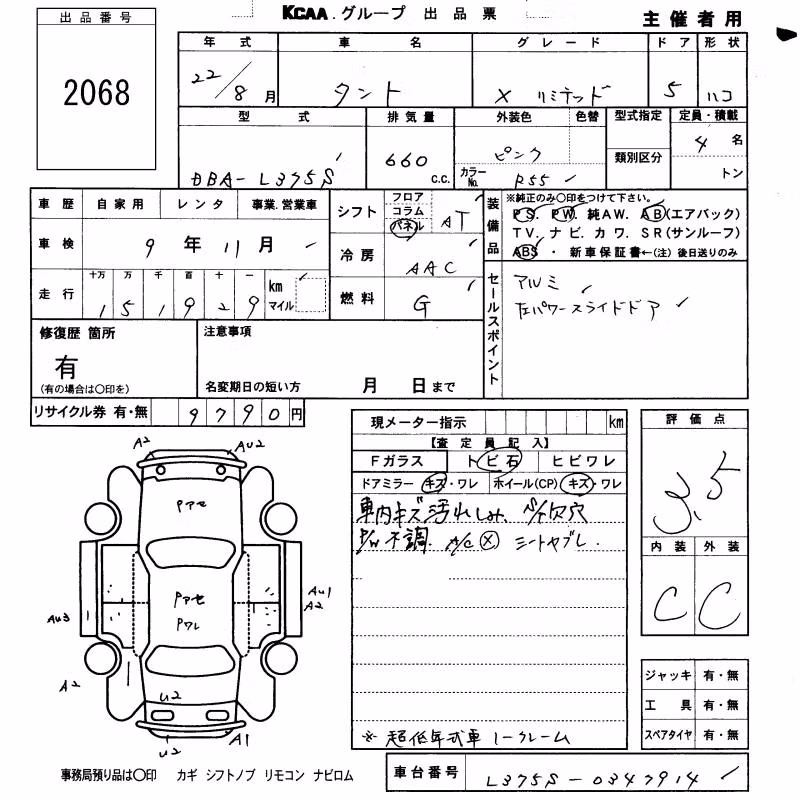 KCAA.グループ 出品票
主催者用
出品番号
2068
年式 車名 グレード ドア 形状
22/8月 タント X リミテッド 5 ハコ
型式 排気量 外装色 色替 型式指定 定員・積載
類別区分
4名
トン
DBA-L375S 660c.c. ピンク
カラーNo. R55
車歴 自家用 レンタ 事業.営業車
車検 9年11月
走行 十万 万 千 百 十 一 km マイル
151929
シフト フロア コラム パネル AT
冷房 AAC
燃料 G
装備品
※純正のみ〇印をつけて下さい。
PS. PW. 純AW. AB(エアバック)
TV. ナビ. カワ. SR(サンルーフ)
ABS・ 新車保証書←(注) 後日送りのみ
セールスポイント
アルミ
左パワースライドドア
修復歴 箇所
有
(有の場合は〇印を)
注意事項
名変期日の短い方 月 日まで
リサイクル券 有・無 9790円
現メーター指示 km
【査定員記入】
Fガラス トビ石 ヒビワレ
ドアミラー キズ・ワレ ホイール(CP) キズ・ワレ
車内キズ汚れしみ. ハ欠穴
P/W不調. A/C(X) シートヤブレ.
※ 超低年式車 ノークレーム
評価点
3.5
内装 外装
C C
ジャッキ 有・無
工具 有・無
スペアタイヤ 有・無
A2 AU2
Pアセ
Pアセ
Pワレ
AU1
A2
AU3
A2
U2
U2
A1
事務局預り品は〇印 カギ シフトノブ リモコン ナビロム
車台番号 L375S-0347914